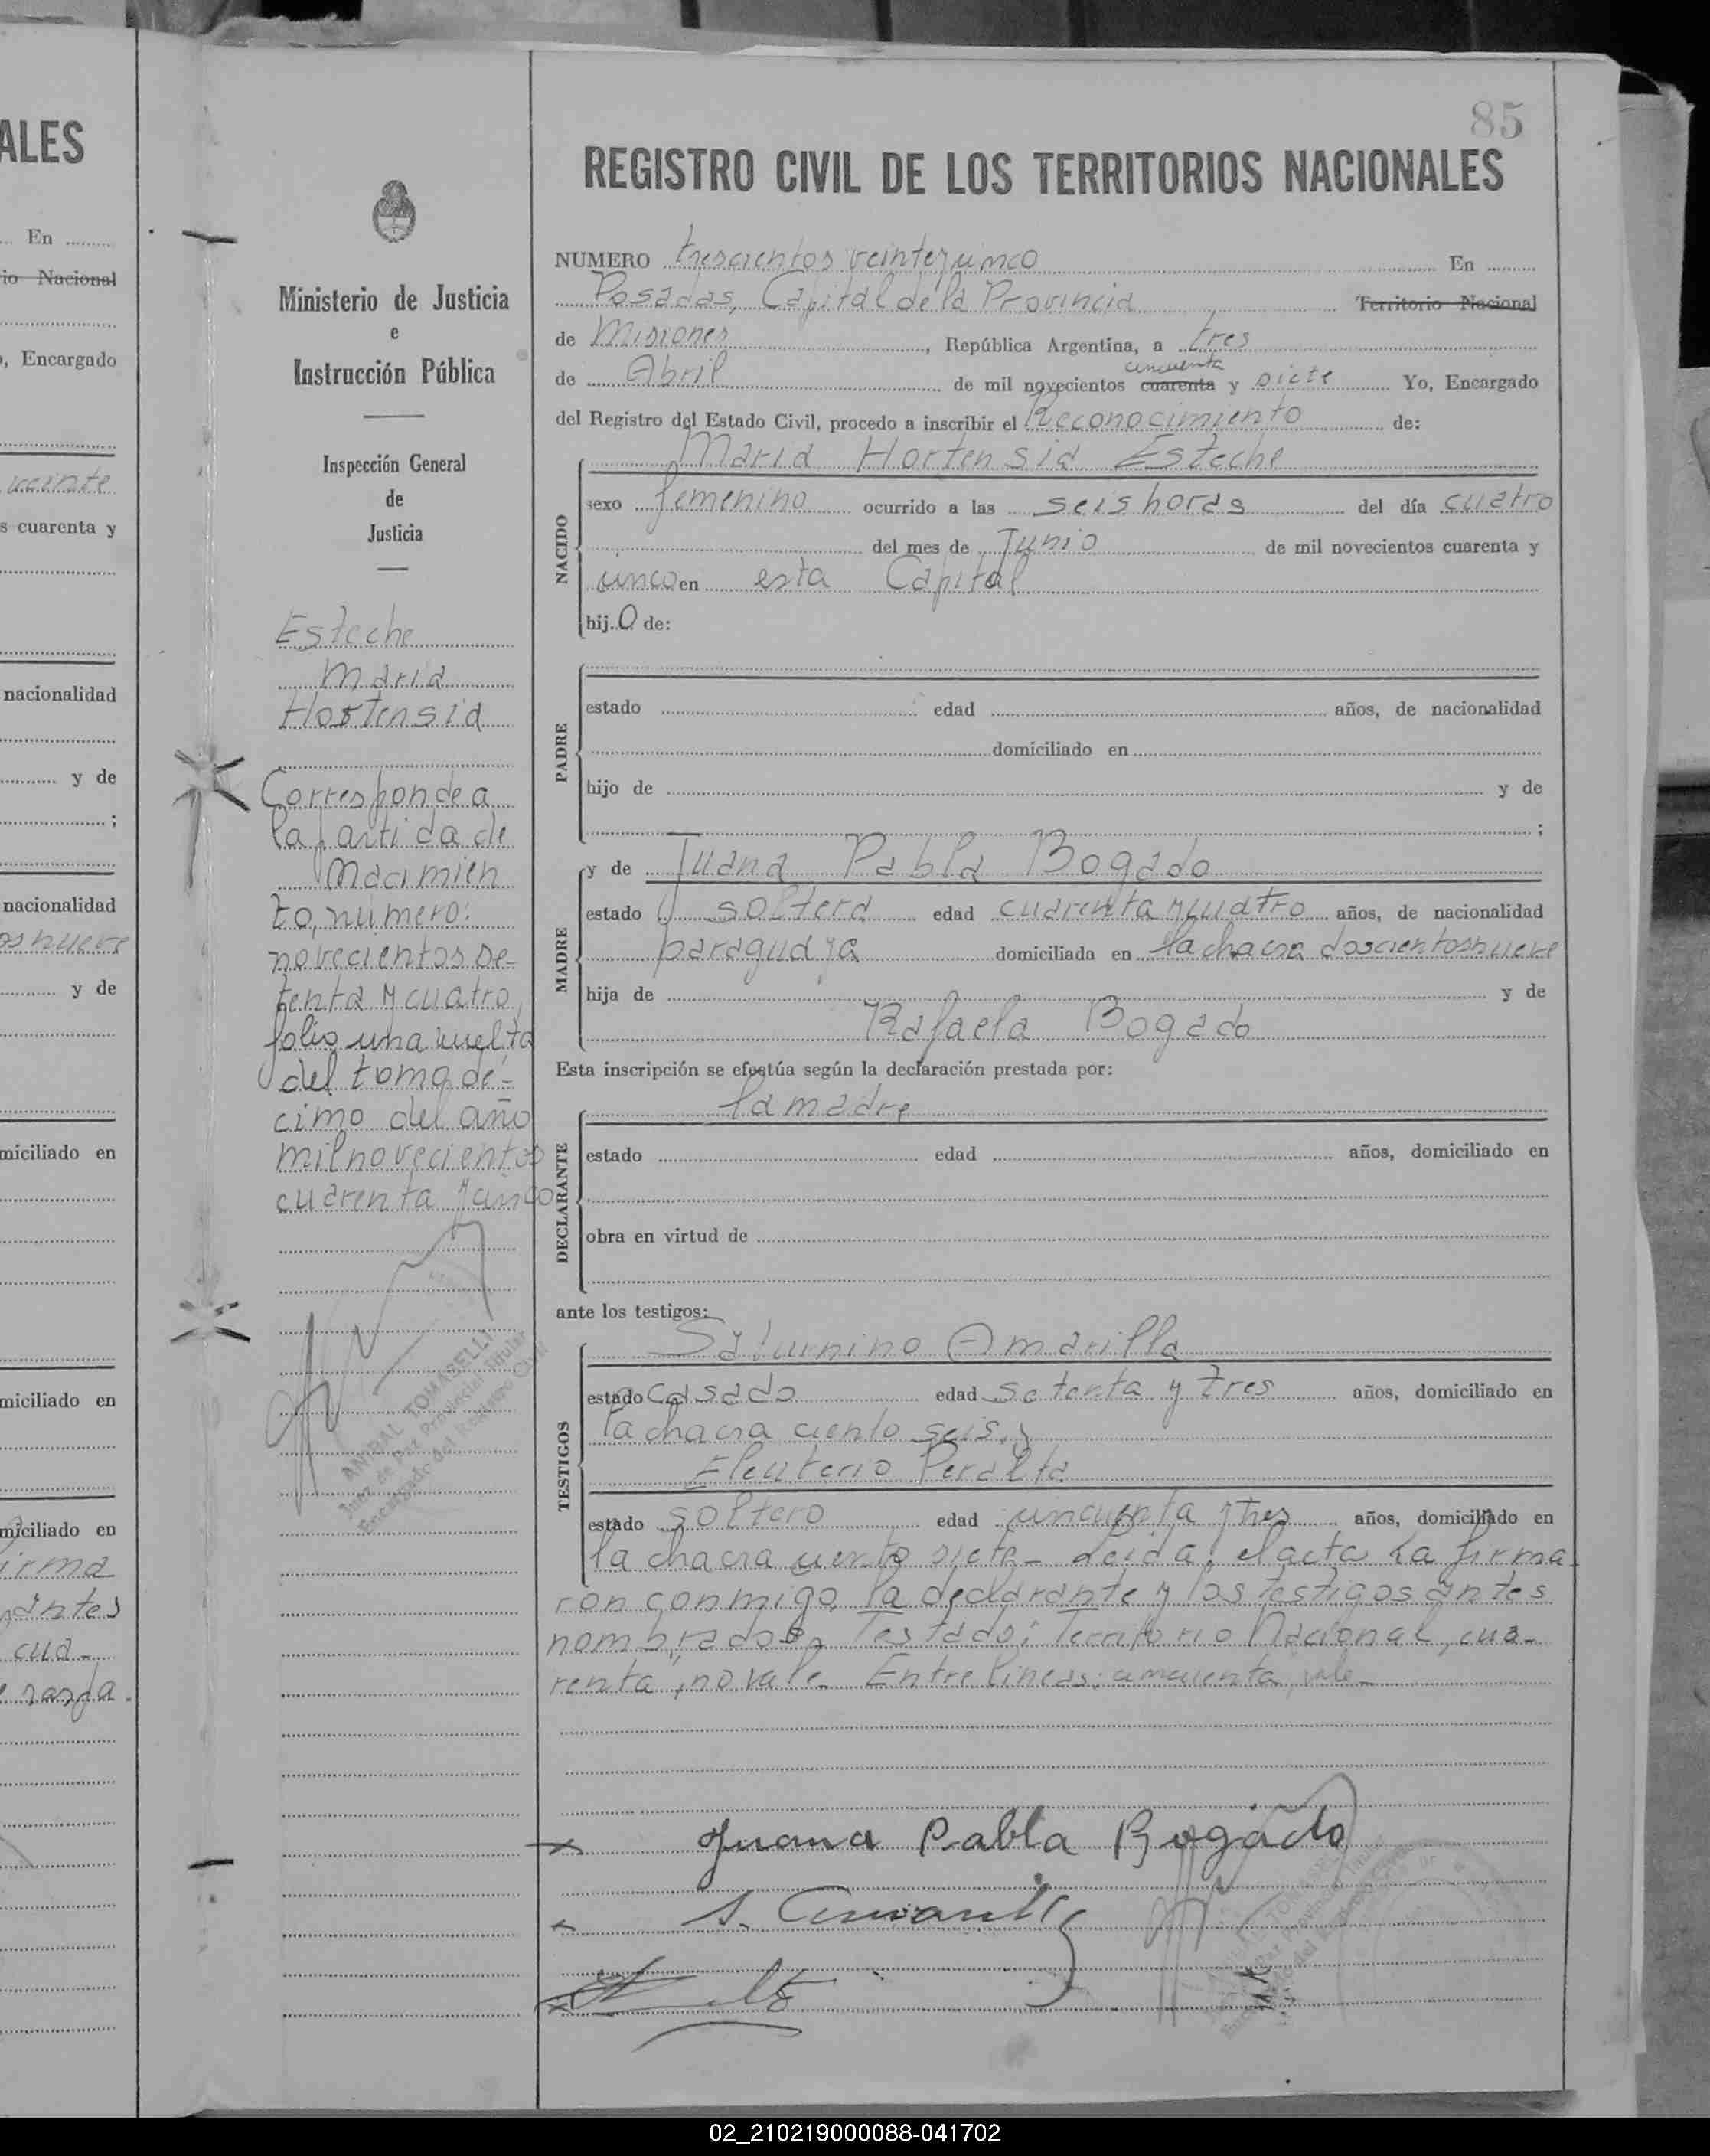 ALES
En
io Nacional
, Encargado
veinte
s cuarenta y
nacionalidad
y de
;
nacionalidad
os nueve
y de
miciliado en
miciliado en
miciliado en
irma
antes
cua-
rasga.
Ministerio de Justicia
e
Instrucción Pública
Inspección General
de
Justicia
Esteche
Maria
Hortensia
Corresponde a
la partida de
Nacimien
to, número:
novecientos se-
tenta y cuatro
folio una vuelta
del tomo dé-
cimo del año
mil novecientos
cuarenta y cinco
ANIBAL TOMASELLI
Juez de Paz Provincial Titular
Encargado del Registro Civil
85
REGISTRO CIVIL DE LOS TERRITORIOS NACIONALES
NUMERO trescientos veintecinco En
Posadas, Capital de la Provincia Territorio Nacional
de Misiones, República Argentina, a tres
cincuenta
de Abril de mil novecientos cuarenta y siete Yo, Encargado
del Registro del Estado Civil, procedo a inscribir el Reconocimiento de:
Maria Hortensia Esteche
NACIDO
sexo femenino ocurrido a las seis horas del día cuatro
del mes de Junio de mil novecientos cuarenta y
cinco en esta Capital
hij O de:
PADRE
estado edad años, de nacionalidad
domiciliado en
hijo de y de
;
MADRE
y de Juana Pabla Bogado
estado soltera edad cuarenta y cuatro años, de nacionalidad
paraguaya domiciliada en la chacra doscientos nueve
hija de y de
Rafaela Bogado
Esta inscripción se efectúa según la declaración prestada por:
la madre
DECLARANTE
estado edad años, domiciliado en
obra en virtud de
ante los testigos:
Saturnino Amarilla
TESTIGOS
estado casado edad setenta y tres años, domiciliado en
la chacra ciento seis, y
Eleuterio Peralta
estado soltero edad cincuenta y tres años, domiciliado en
la chacra ciento siete- Leida el acta la firma
ron conmigo, la declarante y los testigos antes
nombrados- Testado: Territorio Nacional, cua-
renta, no vale- Entre lineas: cincuenta, vale-
Juana Pabla Bogado
S. Amarilla
02_210219000088-041702